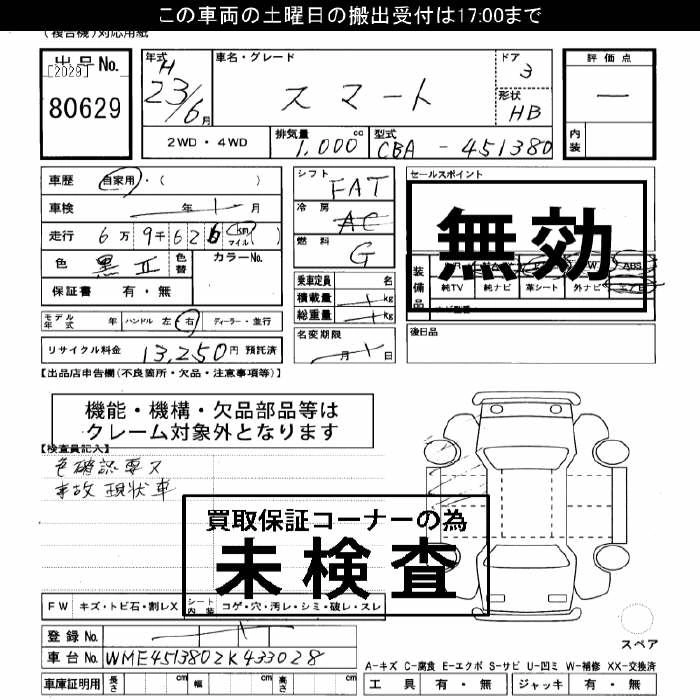 この車両の土曜日の搬出受付は17:00まで
(複合機)対応用紙
出品No.
[2029]
80629
年式 車名・グレード ドア 評価点
H
23/6月 スマート 3 一
形状
HB
2WD・4WD 排気量 1,000 cc 型式 CBA-451380 内装
車歴 自家用・( )
車検 年 月
走行 6万9千626 km マイル ( )
色 黒Ⅱ 色替 カラーNo.
保証書 有・無
モデル年式 年 ハンドル 左 右 ディーラー・並行
リサイクル料金 13,250円 預託済
シフト FAT
冷房 AC
燃料 G
乗車定員 名
積載量 kg
総重量 kg
名変期限
月 日
セールスポイント
無効
装備品 ABS
純TV 純ナビ 革シート 外ナビ エアB
後日品
【出品店申告欄(不良箇所・欠品・注意事項等)】
機能・機構・欠品部品等は
クレーム対象外となります
【検査員記入】
色確認要ス
事故 現状車
買取保証コーナーの為
未検査
FW キズ・トビ石・割レX シート内装 コゲ・穴・汚レ・シミ・破レ・スレ
登録No.
車台No. WME4513802K433028
車庫証明用 長さ cm 幅 cm 高さ cm
スペア
A-キズ C-腐食 E-エクボ S-サビ U-凹ミ W-補修 XX-交換済
工具 有・無 ジャッキ 有・無